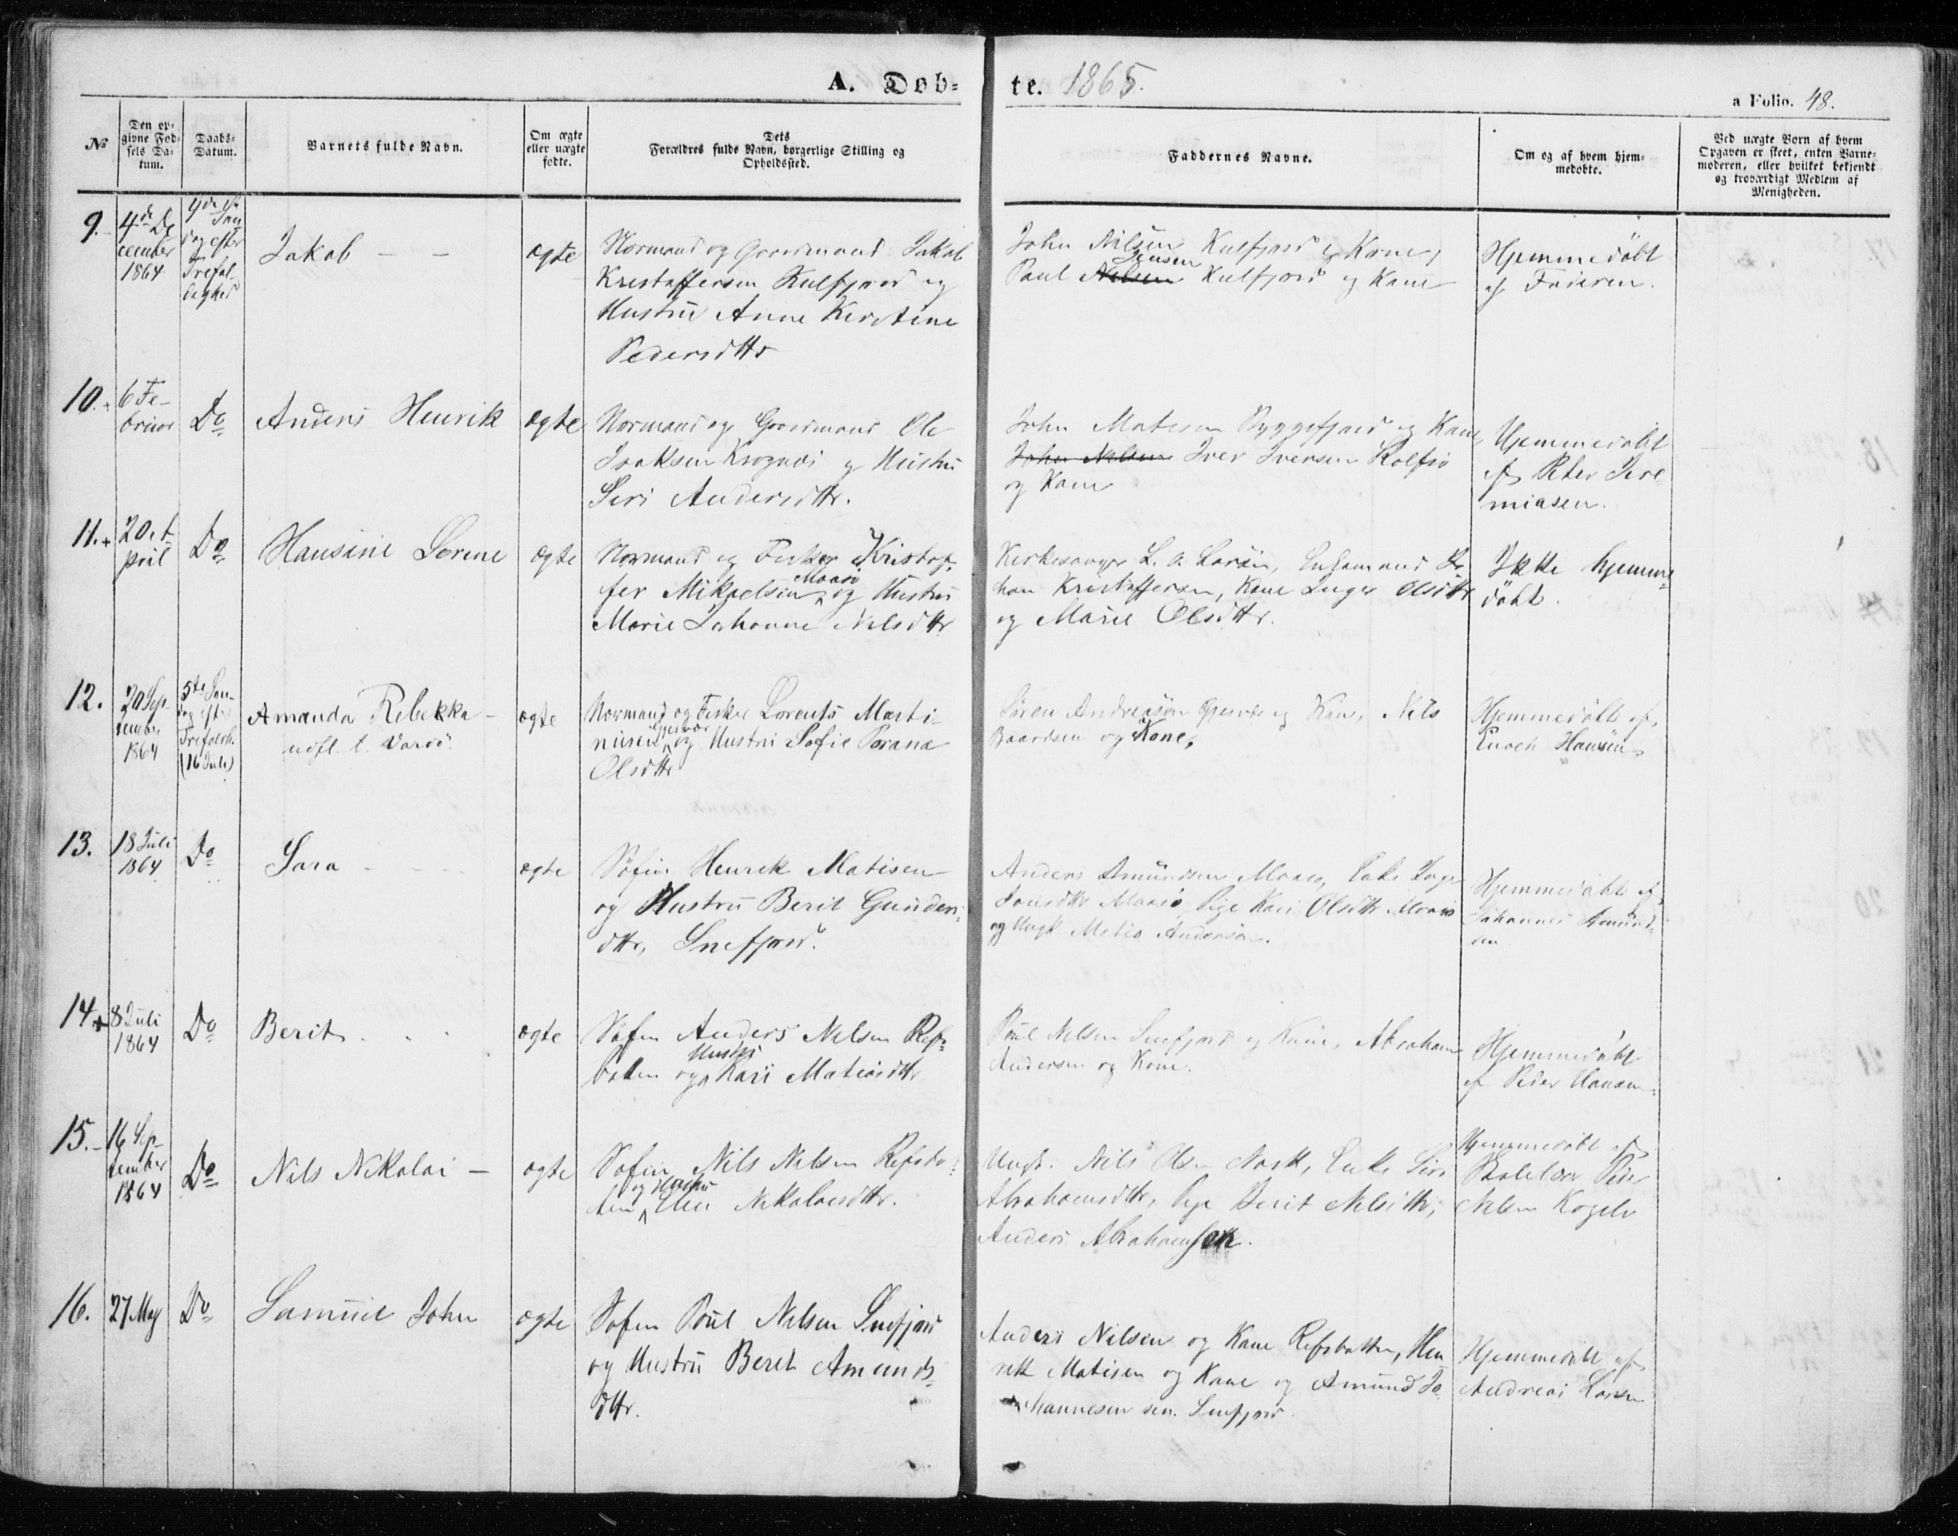 A. Døb-
te. 1865.
a Folio. 48.
№
Den op-
givne Fød-
sels Da-
tum.
Daabs-
Datum.
Barnets fulde Navn.
Om ægte
eller uægte
fødte.
Dets
Forældres fulde Navn, borgerlige Stilling og
Opholdssted.
Faddernes Navne.
Om og af hvem hjem-
medøbte.
Ved uægte Børn af hvem
Opgaven er skeet, enten Barne-
moderen, eller hvilket bekjendt
og troværdigt Medlem af
Menigheden.
9.
4de De
cember
1864
4de Søn
dag efter
Trefol-
dighed
Jakob
ægte
Normand og Gaardmand Jakob
Kristoffersen Kulfjord og
Hustru Anne Kirstine
Pedersdttr
John Nilsen Kulfjord og Kone,
Jensen
Paul Nilsen Kulfjord og Kone
Hjemmedøbt
af Faderen.
10.
6 Fe-
bruar
Do
Anders Henrik
ægte
Normand og Gaardmand Ole
Isaksen Krognæs og Hustru
Siri Andersdttr.
John Matisen Ryggefjord og Kone
John Nilsen Iver Iversen Rolfsø
og Kone
Hjemmedøbt
af Peter Jere-
miasen.
11.
20. A-
pril
Do
Hansine Lorene
ægte
Normand og Fisker Kristof-
Maasø
fer Mikkelsen og Hustru
Marie Johanne Nilsdttr
Kirkesanger L. O. Larsen, Ungmand Jo-
han Kristoffersen, Kone Inger Olsdttr
og Marie Olsdttr.
Ikke hjemme-
døbt.
12.
20 Sep-
tember
1864
5te Søn-
dag efter
Trefoldh.
(16 Juli)
Amanda Rebekka
udfl. t. Vardø.
ægte
Normand og Fisker Lorents Marti-
Gjesvær
nusen og Hustru Sofie
Olsdttr
Søren Andreasen Gjesvær og Kone, Nils
Baardsen og Kone,
Hjemmedøbt af
Enoch Hansen
13.
18 Juli
1864
Do
Sara
ægte
Søfin Henrik Matisen
og Hustru Berit Gunders-
dttr, Snefjord.
Anders Amundsen Maasø, Enke Inger
Jonsdttr Maasø, Pige Kari Olsdttr Maasø
og Ungk Matis Andersen.
Hjemmedøbt af
Johannes Amund-
sen
14
8 Juli
1864
Do
Berit
ægte
Søfin Anders Nilsen Refs-
Hustru
botten og Kari Matisdttr
Poul Nilsen Snefjord og Kone, Abraham
Andersen og Kone.
Hjemmedøbt
af Peder Hansen
15.
16 Sep-
tember
1864
Do
Nils Nikolai
ægte
Søfin Nils Nilsen Refsbot-
og Hustru
ten Elen Nikolaisdttr.
Ungk. Nils Olsen Aast, Enke Siri
Abrahamsdttr, Pige Berit Nilsdttr,
Anders Abrahamsen.
Hjemmedøbt af
Skolelærer Peder
Nilsen Kogelv
16.
27 Maj
Do
Samuel John
ægte
Søfin Poul Nilsen Snefjord
og Hustru Berit Amunds-
dttr.
Anders Nilsen og Kone Refsbotten, Hen-
rik Matisen og Kone og Amund Jo-
hannesen sen. Snefjord.
Hjemmedøbt af
Andreas Larsen